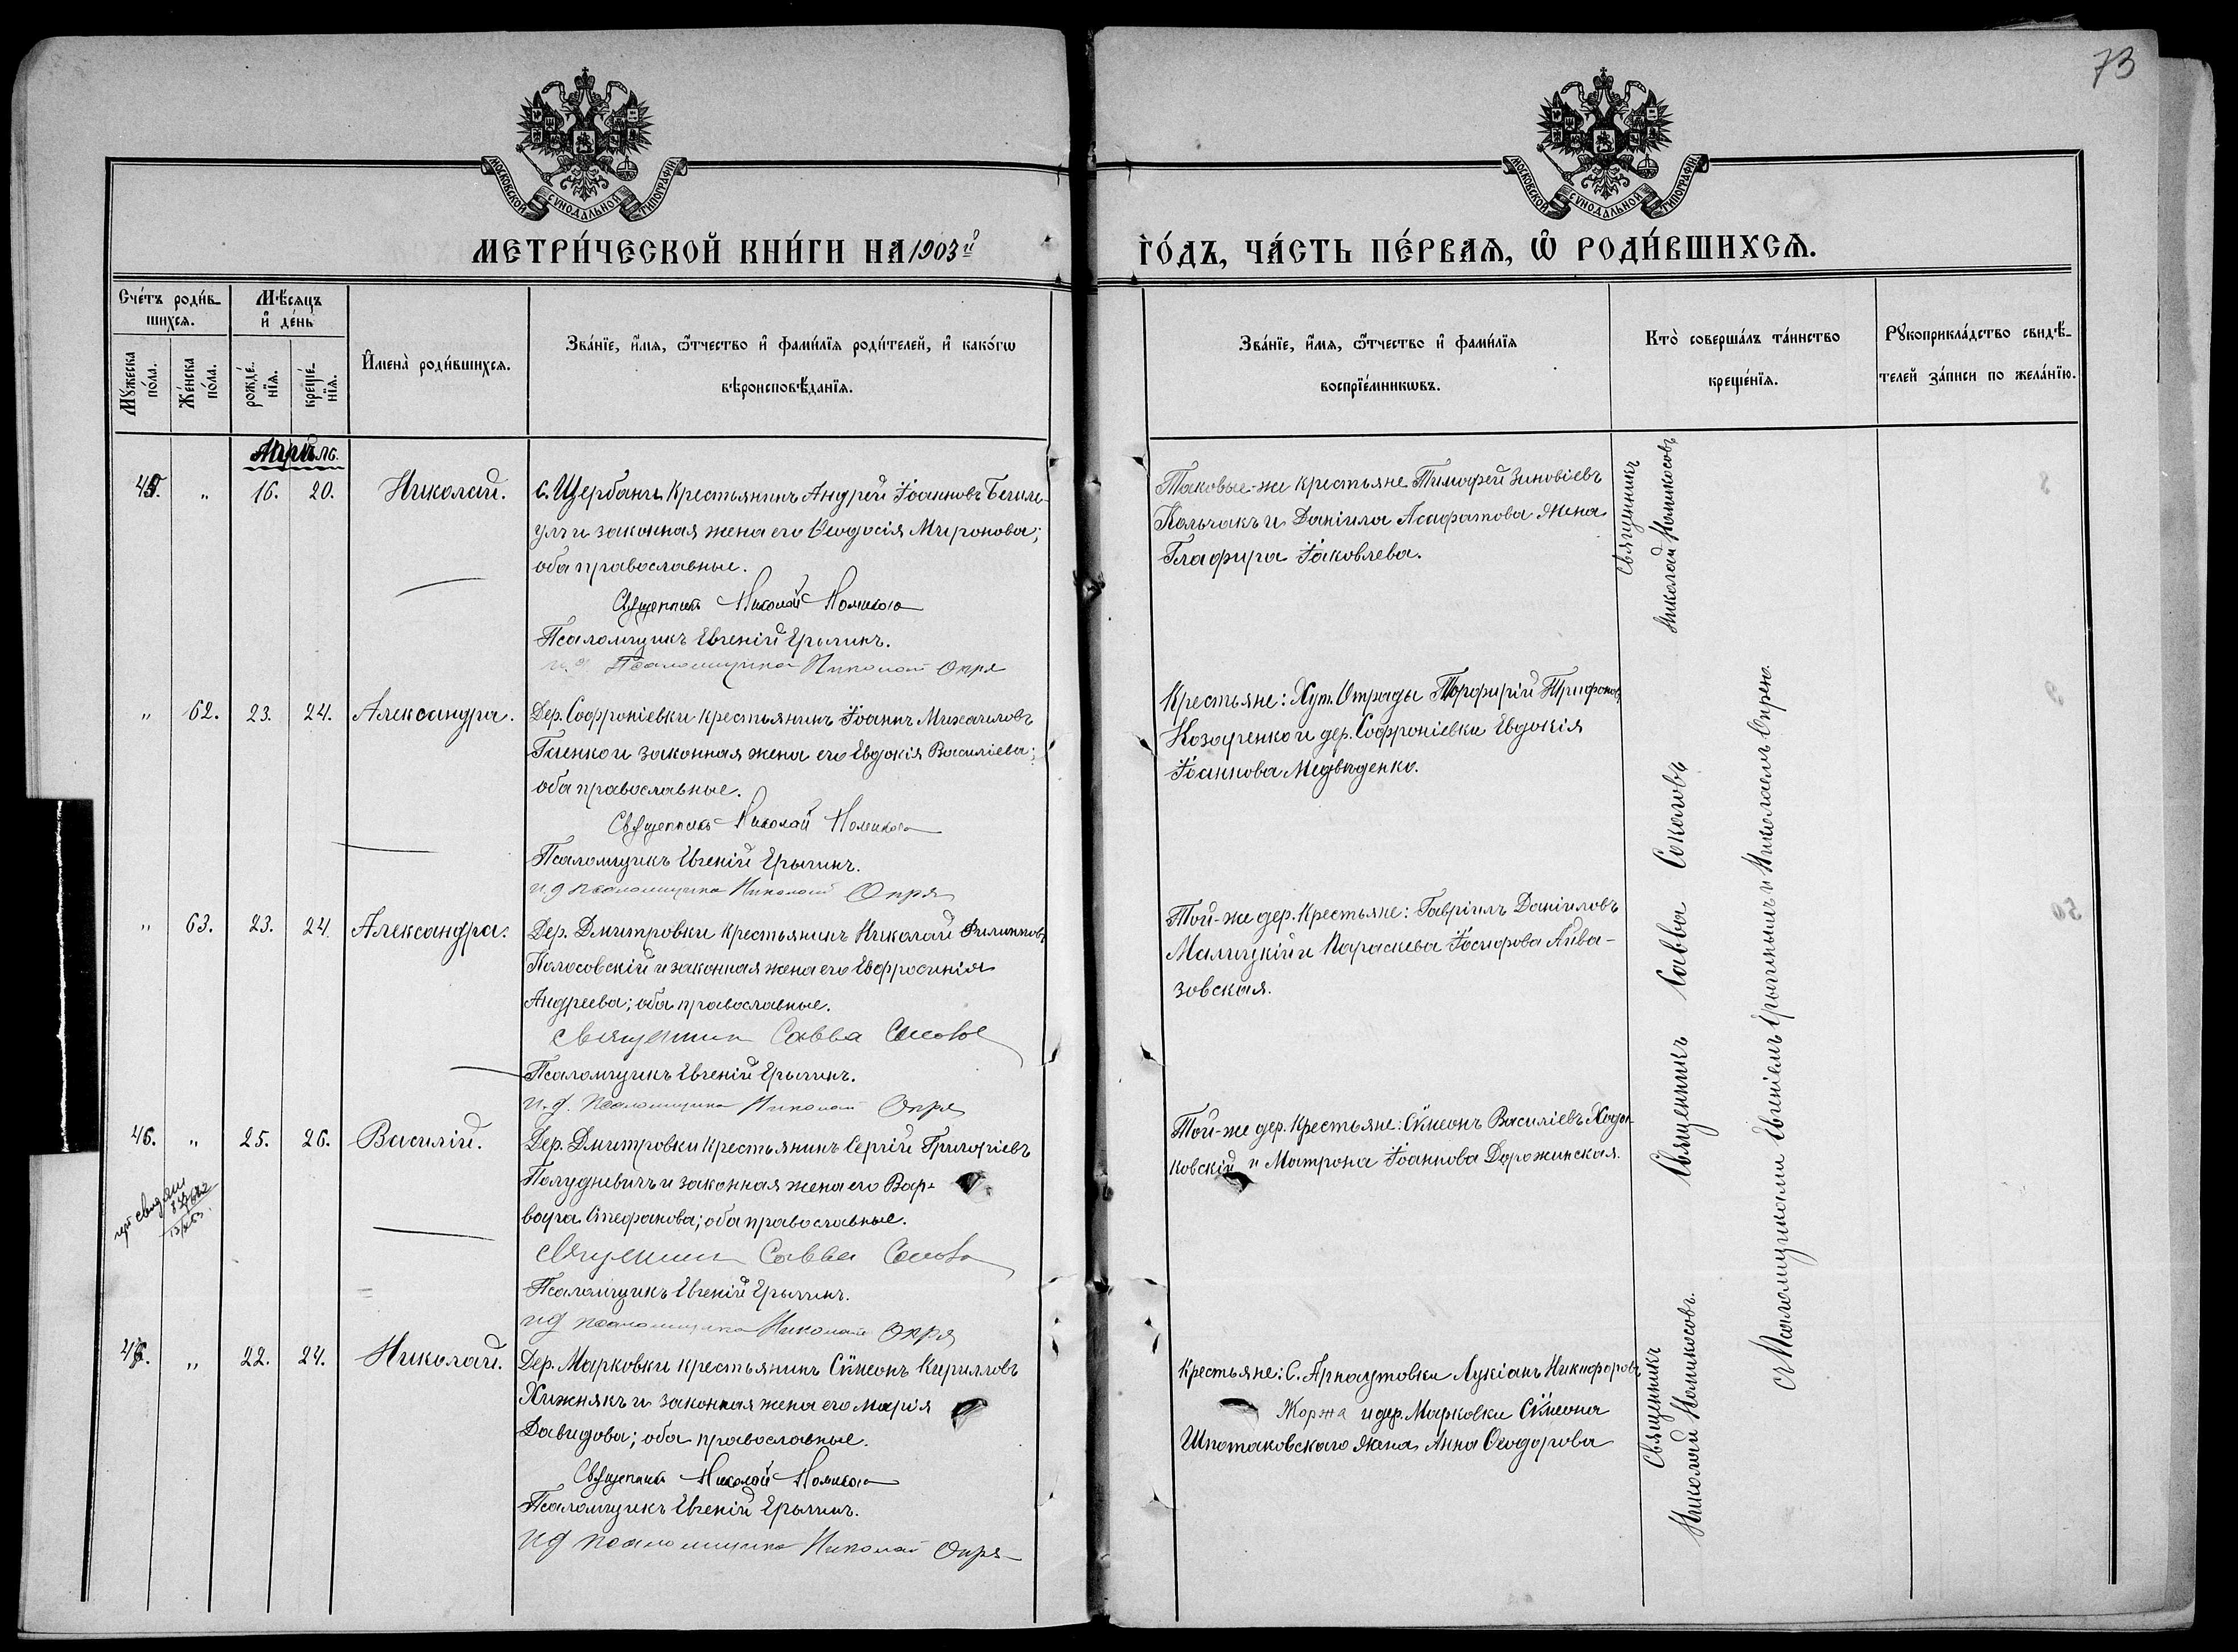 73
МОСКОВСКОЙ СѴНОДАЛЬНОЙ ТИПОГРАФІИ
МОСКОВСКОЙ СѴНОДАЛЬНОЙ ТИПОГРАФІИ
МЕТРИ́ЧЕСКОЙ КНИ́ГИ НА 1903й
ГО́ДЪ, ЧА́СТЬ ПЕ́РВАѦ, Ѡ҆ РОДИ́ВШИХСѦ.
Сче́тъ роди́в-
шихсѧ.
Мѣ́сяцъ
и҆ де́нь
Мꙋ́жеска
по́ла.
Же́нска
по́ла.
рожде́-
нїѧ.
креще́-
нїѧ.
И҆мена̀ роди́вшихсѧ.
Зва́нїе, и҆́мѧ, ѻ҆́тчество и҆ фами́лїѧ роди́телей, и҆ како́гѡ
вѣроисповѣ́данїѧ.
Зва́нїе, и҆́мѧ, ѻ҆́тчество и҆ фами́лїѧ
воспрїе́мникѡвъ.
Кто̀ соверша́лъ та́инство
креще́нїѧ.
Рꙋкоприкла́дство свидѣ́-
телей за́писи по жела́нїю.
Апрѣль.
45. „ 16. 20. Николай.
С. Щербани крестьянинъ Андрей Іоанновъ
и законная жена его Ѳеодосія Миронова;
оба православные.
Священникъ Николай
Псаломщикъ Евгеній Ерыгинъ.
и.д. Псаломщика Николай Опря
Таковые-же крестьяне Тимофей Зиновіевъ
Колчакъ и Даніила Асафатова жена
Глафира Іаковлева.
Священникъ
Николай Номикосовъ
„ 62. 23. 24. Александра.
Дер. Софроніевки крестьянинъ Іоаннъ Михаиловъ
Гаенко и законная жена его Евдокія Василіева;
оба православные.
Священникъ Николай
Псаломщикъ Евгеній Ерыгинъ.
и.д псаломщика Николай Опря
Крестьяне: Хут. Отрады Порфирій Трифоновъ
Козаренко и дер. Софроніевки Евдокія
Іоаннова Медвѣденко.
„ 63. 23. 24 Александра.
Дер. Дмитровки крестьянинъ Николай Филипповъ
Колосовскій и законная жена его Евфросинія
Андреева; оба православные.
Священник Савва
Псаломщикъ Евгеній Ерыгинъ.
и.д. псаломщика Николай Опря
Той-же дер. крестьяне: Гавріилъ Даніиловъ
Малицкій и Параскева Іосифова Айва-
зовская.
46. „ 25. 26. Василій.
Дер. Дмитровки крестьянинъ Сергій Григоріевъ
Полудневичъ и законная жена его Вар-
вара Стефанова; оба православные.
Савва
Псаломщикъ Евгеній Ерыгинъ.
ид псаломщика Николай Опря
Той-же дер. крестьяне: Сѵмеонъ Василіевъ Ходон-
ковскій и Матрона Іоаннова Дорожинская.
Священникъ Савва Соколовъ
съ Псаломщиками Евгеніемъ Ерыгинымъ и Николаемъ Опрею.
47. „ 22. 24. Николай.
Дер. Марковки крестьянинъ Сѵмеонъ Кирилловъ
Хижнякъ и законная жена его Марія
Давидова; оба православные.
Священникъ Николай
Псаломщикъ Евгеній Ерыгинъ.
ид псаломщика Николай Опря
Крестьяне: С. Арнаутовки Лукіанъ Никифоровъ
Жоржа и дер. Марковки Сѵмеона
Шпотаковскаго жена Анна Ѳеодорова
Священникъ
Николай Номикосовъ.